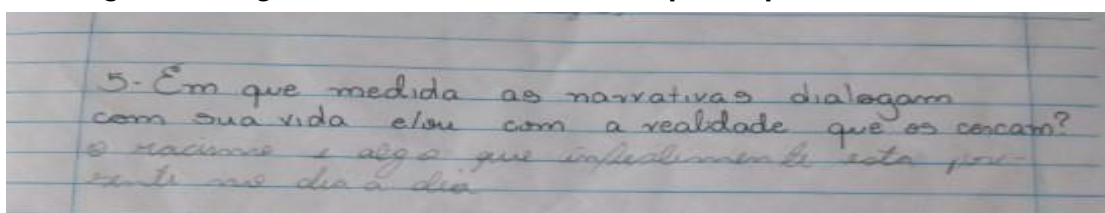 5- Em que medida as narrativas dialogam
com sua vida e/ou com a realidade que os cercam?
o racismo é algo que infelizmente esta pre-
sente no dia a dia